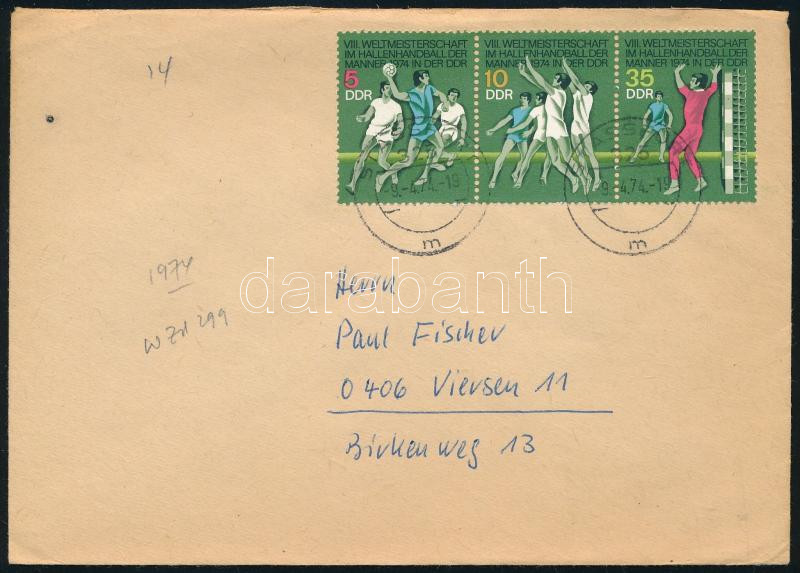 14
VIII. WELTMEISTERSCHAFT
IM HALLENHANDBALL DER
MÄNNER 1974 IN DER DDR
5
DDR
VIII. WELTMEISTERSCHAFT
IM HALLENHANDBALL DER
MÄNNER 1974 IN DER DDR
10
DDR
VIII. WELTMEISTERSCHAFT
IM HALLENHANDBALL DER
MÄNNER 1974 IN DER DDR
35
DDR
9.-4.74.-19
m
9. 4.74.-19
m
1974
W Zd 299
darabanth
Herrn
Paul Fischer
0406 Viersen 11
Birkenweg 13